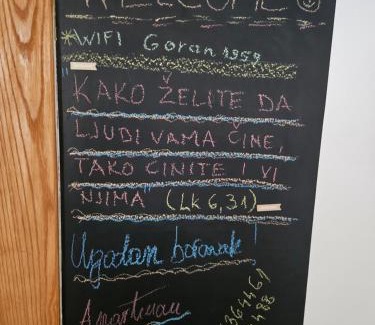 WELCOME
*WIFI Goran1959
KAKO ŽELITE DA
LJUDI VAMA ČINE,
TAKO ČINITE I VI
NJIMA (Lk 6,31)
Ugodan boravak!
Apartman